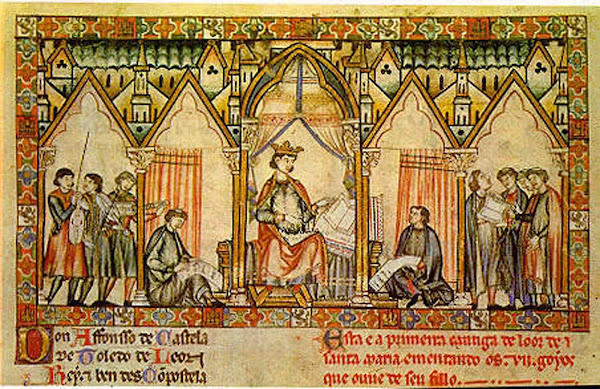 Don Affonsso de Castela
de Toledo de Leon
Rey τ ben des Conpostela
Esta e a primeira cantiga de loor de
santa maria ementando os .vii. goyos
que ouue de seu fillo.